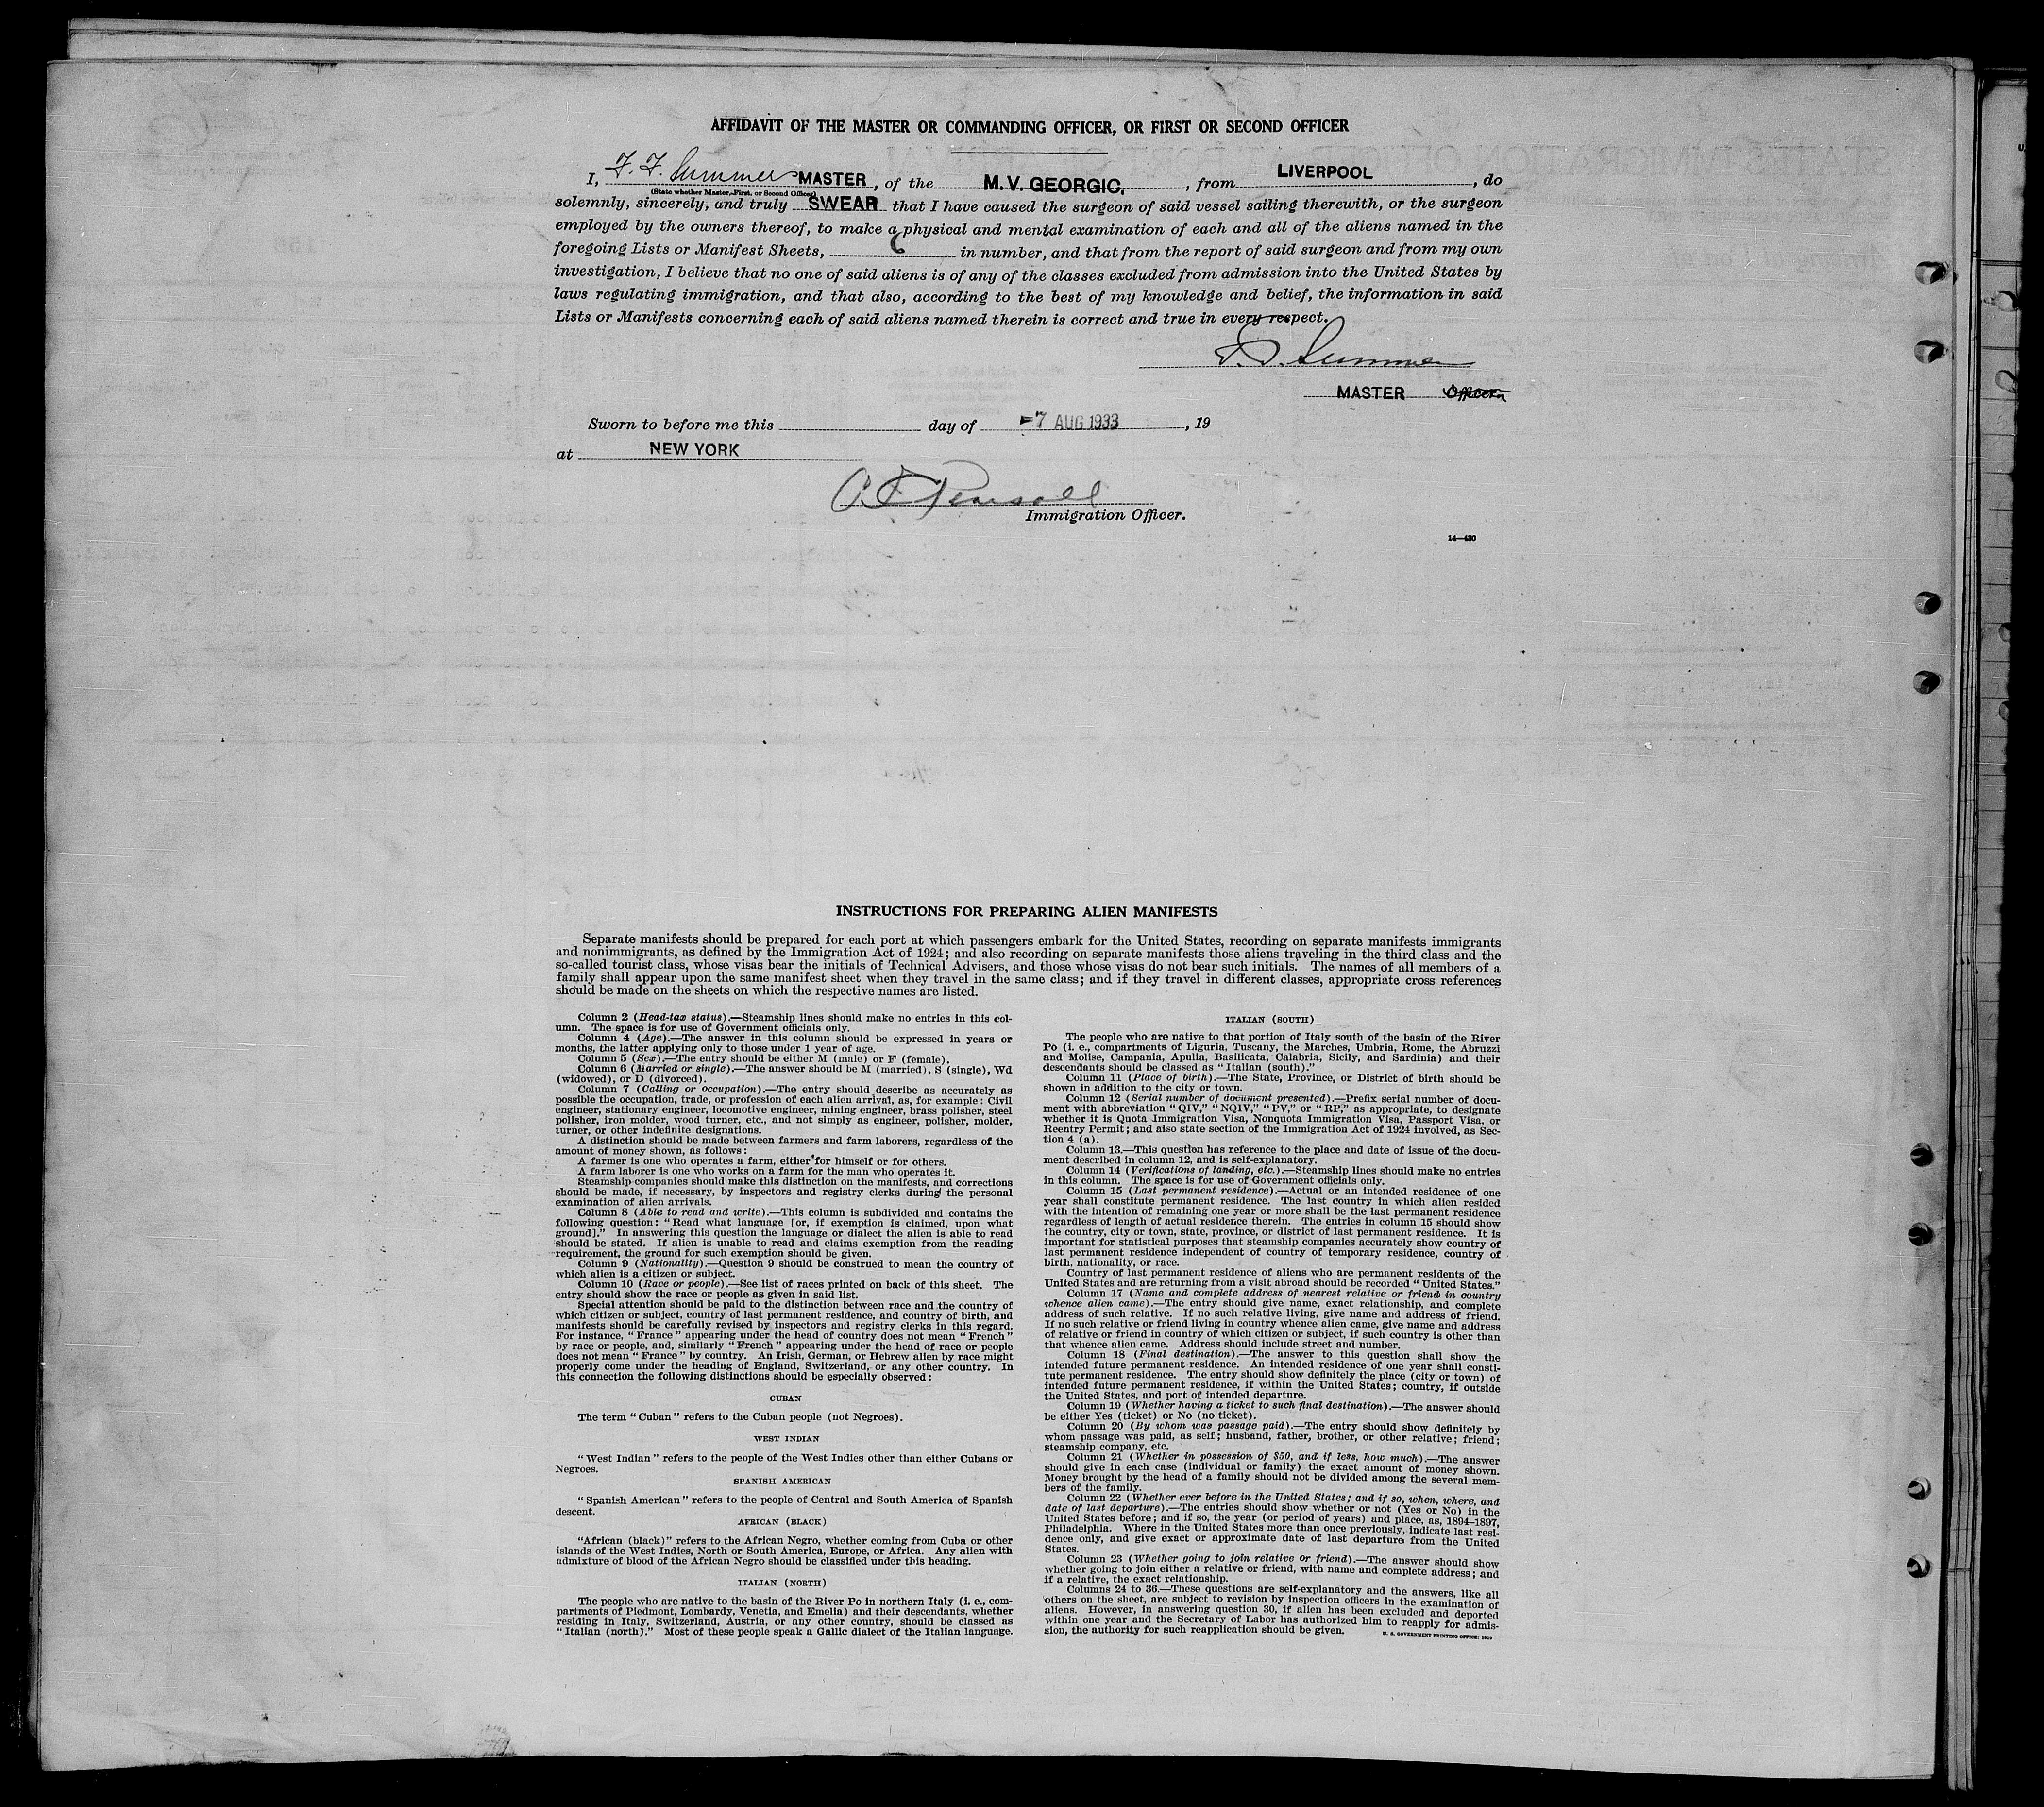 AFFIDAVIT OF THE MASTER OR COMMANDING OFFICER, OR FIRST OR SECOND OFFICER
I, F. F. Summer MASTER, of the M.V. GEORGIC, from LIVERPOOL, do
(State whether Master, First, or Second Officer)
solemnly, sincerely, and truly SWEAR that I have caused the surgeon of said vessel sailing therewith, or the surgeon
employed by the owners thereof, to make a physical and mental examination of each and all of the aliens named in the
foregoing Lists or Manifest Sheets, 6 in number, and that from the report of said surgeon and from my own
investigation, I believe that no one of said aliens is of any of the classes excluded from admission into the United States by
laws regulating immigration, and that also, according to the best of my knowledge and belief, the information in said
Lists or Manifests concerning each of said aliens named therein is correct and true in every respect.
F. F. Summer
MASTER Officer.
Sworn to before me this day of -7 AUG 1933, 19
at NEW YORK
Immigration Officer.
14—430
INSTRUCTIONS FOR PREPARING ALIEN MANIFESTS
Separate manifests should be prepared for each port at which passengers embark for the United States, recording on separate manifests immigrants
and nonimmigrants, as defined by the Immigration Act of 1924; and also recording on separate manifests those aliens traveling in the third class and the
so-called tourist class, whose visas bear the initials of Technical Advisers, and those whose visas do not bear such initials. The names of all members of a
family shall appear upon the same manifest sheet when they travel in the same class; and if they travel in different classes, appropriate cross references
should be made on the sheets on which the respective names are listed.
Column 2 (Head-tax status).—Steamship lines should make no entries in this col-
umn. The space is for use of Government officials only.
Column 4 (Age).—The answer in this column should be expressed in years or
months, the latter applying only to those under 1 year of age.
Column 5 (Sex).—The entry should be either M (male) or F (female).
Column 6 (Married or single).—The answer should be M (married), S (single), Wd
(widowed), or D (divorced).
Column 7 (Calling or occupation).—The entry should describe as accurately as
possible the occupation, trade, or profession of each alien arrival, as, for example: Civil
engineer, stationary engineer, locomotive engineer, mining engineer, brass polisher, steel
polisher, iron molder, wood turner, etc., and not simply as engineer, polisher, molder,
turner, or other indefinite designations.
A distinction should be made between farmers and farm laborers, regardless of the
amount of money shown, as follows:
A farmer is one who operates a farm, either for himself or for others.
A farm laborer is one who works on a farm for the man who operates it.
Steamship companies should make this distinction on the manifests, and corrections
should be made, if necessary, by inspectors and registry clerks during the personal
examination of alien arrivals.
Column 8 (Able to read and write).—This column is subdivided and contains the
following question: "Read what language [or, if exemption is claimed, upon what
ground]." In answering this question the language or dialect the alien is able to read
should be stated. If alien is unable to read and claims exemption from the reading
requirement, the ground for such exemption should be given.
Column 9 (Nationality).—Question 9 should be construed to mean the country of
which alien is a citizen or subject.
Column 10 (Race or people).—See list of races printed on back of this sheet. The
entry should show the race or people as given in said list.
Special attention should be paid to the distinction between race and the country of
which citizen or subject, country of last permanent residence, and country of birth, and
manifests should be carefully revised by inspectors and registry clerks in this regard.
For instance, "France" appearing under the head of country does not mean "French"
by race or people, and, similarly "French" appearing under the head of race or people
does not mean "France" by country. An Irish, German, or Hebrew alien by race might
properly come under the heading of England, Switzerland, or any other country. In
this connection the following distinctions should be especially observed:
CUBAN
The term "Cuban" refers to the Cuban people (not Negroes).
WEST INDIAN
"West Indian" refers to the people of the West Indies other than either Cubans or
Negroes.
SPANISH AMERICAN
"Spanish American" refers to the people of Central and South America of Spanish
descent.
AFRICAN (BLACK)
"African (black)" refers to the African Negro, whether coming from Cuba or other
islands of the West Indies, North or South America, Europe, or Africa. Any alien with
admixture of blood of the African Negro should be classified under this heading.
ITALIAN (NORTH)
The people who are native to the basin of the River Po in northern Italy (i. e., com-
partments of Piedmont, Lombardy, Venetia, and Emelia) and their descendants, whether
residing in Italy, Switzerland, Austria, or any other country, should be classed as
"Italian (north)." Most of these people speak a Gallic dialect of the Italian language.
ITALIAN (SOUTH)
The people who are native to that portion of Italy south of the basin of the River
Po (i. e., compartments of Liguria, Tuscany, the Marches, Umbria, Rome, the Abruzzi
and Molise, Campania, Apulia, Basilicata, Calabria, Sicily, and Sardinia) and their
descendants should be classed as "Italian (south)."
Column 11 (Place of birth).—The State, Province, or District of birth should be
shown in addition to the city or town.
Column 12 (Serial number of document presented).—Prefix serial number of docu-
ment with abbreviation "QIV," "NQIV," "PV," or "RP," as appropriate, to designate
whether it is Quota Immigration Visa, Nonquota Immigration Visa, Passport Visa, or
Reentry Permit; and also state section of the Immigration Act of 1924 involved, as Sec-
tion 4 (a).
Column 13.—This question has reference to the place and date of issue of the docu-
ment described in column 12, and is self-explanatory.
Column 14 (Verifications of landing, etc.).—Steamship lines should make no entries
in this column. The space is for use of Government officials only.
Column 15 (Last permanent residence).—Actual or an intended residence of one
year shall constitute permanent residence. The last country in which alien resided
with the intention of remaining one year or more shall be the last permanent residence
regardless of length of actual residence therein. The entries in column 15 should show
the country, city or town, state, province, or district of last permanent residence. It is
important for statistical purposes that steamship companies accurately show country of
last permanent residence independent of country of temporary residence, country of
birth, nationality, or race.
Country of last permanent residence of aliens who are permanent residents of the
United States and are returning from a visit abroad should be recorded "United States."
Column 17 (Name and complete address of nearest relative or friend in country
whence alien came).—The entry should give name, exact relationship, and complete
address of such relative. If no such relative living, give name and address of friend.
If no such relative or friend living in country whence alien came, give name and address
of relative or friend in country of which citizen or subject, if such country is other than
that whence alien came. Address should include street and number.
Column 18 (Final destination).—The answer to this question shall show the
intended future permanent residence. An intended residence of one year shall consti-
tute permanent residence. The entry should show definitely the place (city or town) of
intended future permanent residence, if within the United States; country, if outside
the United States, and port of intended departure.
Column 19 (Whether having a ticket to such final destination).—The answer should
be either Yes (ticket) or No (no ticket).
Column 20 (By whom was passage paid).—The entry should show definitely by
whom passage was paid, as self; husband, father, brother, or other relative; friend;
steamship company, etc.
Column 21 (Whether in possession of $50, and if less, how much).—The answer
should give in each case (individual or family) the exact amount of money shown.
Money brought by the head of a family should not be divided among the several mem-
bers of the family.
Column 22 (Whether ever before in the United States; and if so, when, where, and
date of last departure).—The entries should show whether or not (Yes or No) in the
United States before; and if so, the year (or period of years) and place, as, 1894–1897,
Philadelphia. Where in the United States more than once previously, indicate last resi-
dence only, and give exact or approximate date of last departure from the United
States.
Column 23 (Whether going to join relative or friend).—The answer should show
whether going to join either a relative or friend, with name and complete address; and
if a relative, the exact relationship.
Columns 24 to 36.—These questions are self-explanatory and the answers, like all
others on the sheet, are subject to revision by inspection officers in the examination of
aliens. However, in answering question 30, if alien has been excluded and deported
within one year and the Secretary of Labor has authorized him to reapply for admis-
sion, the authority for such reapplication should be given.
U. S. GOVERNMENT PRINTING OFFICE: 1929